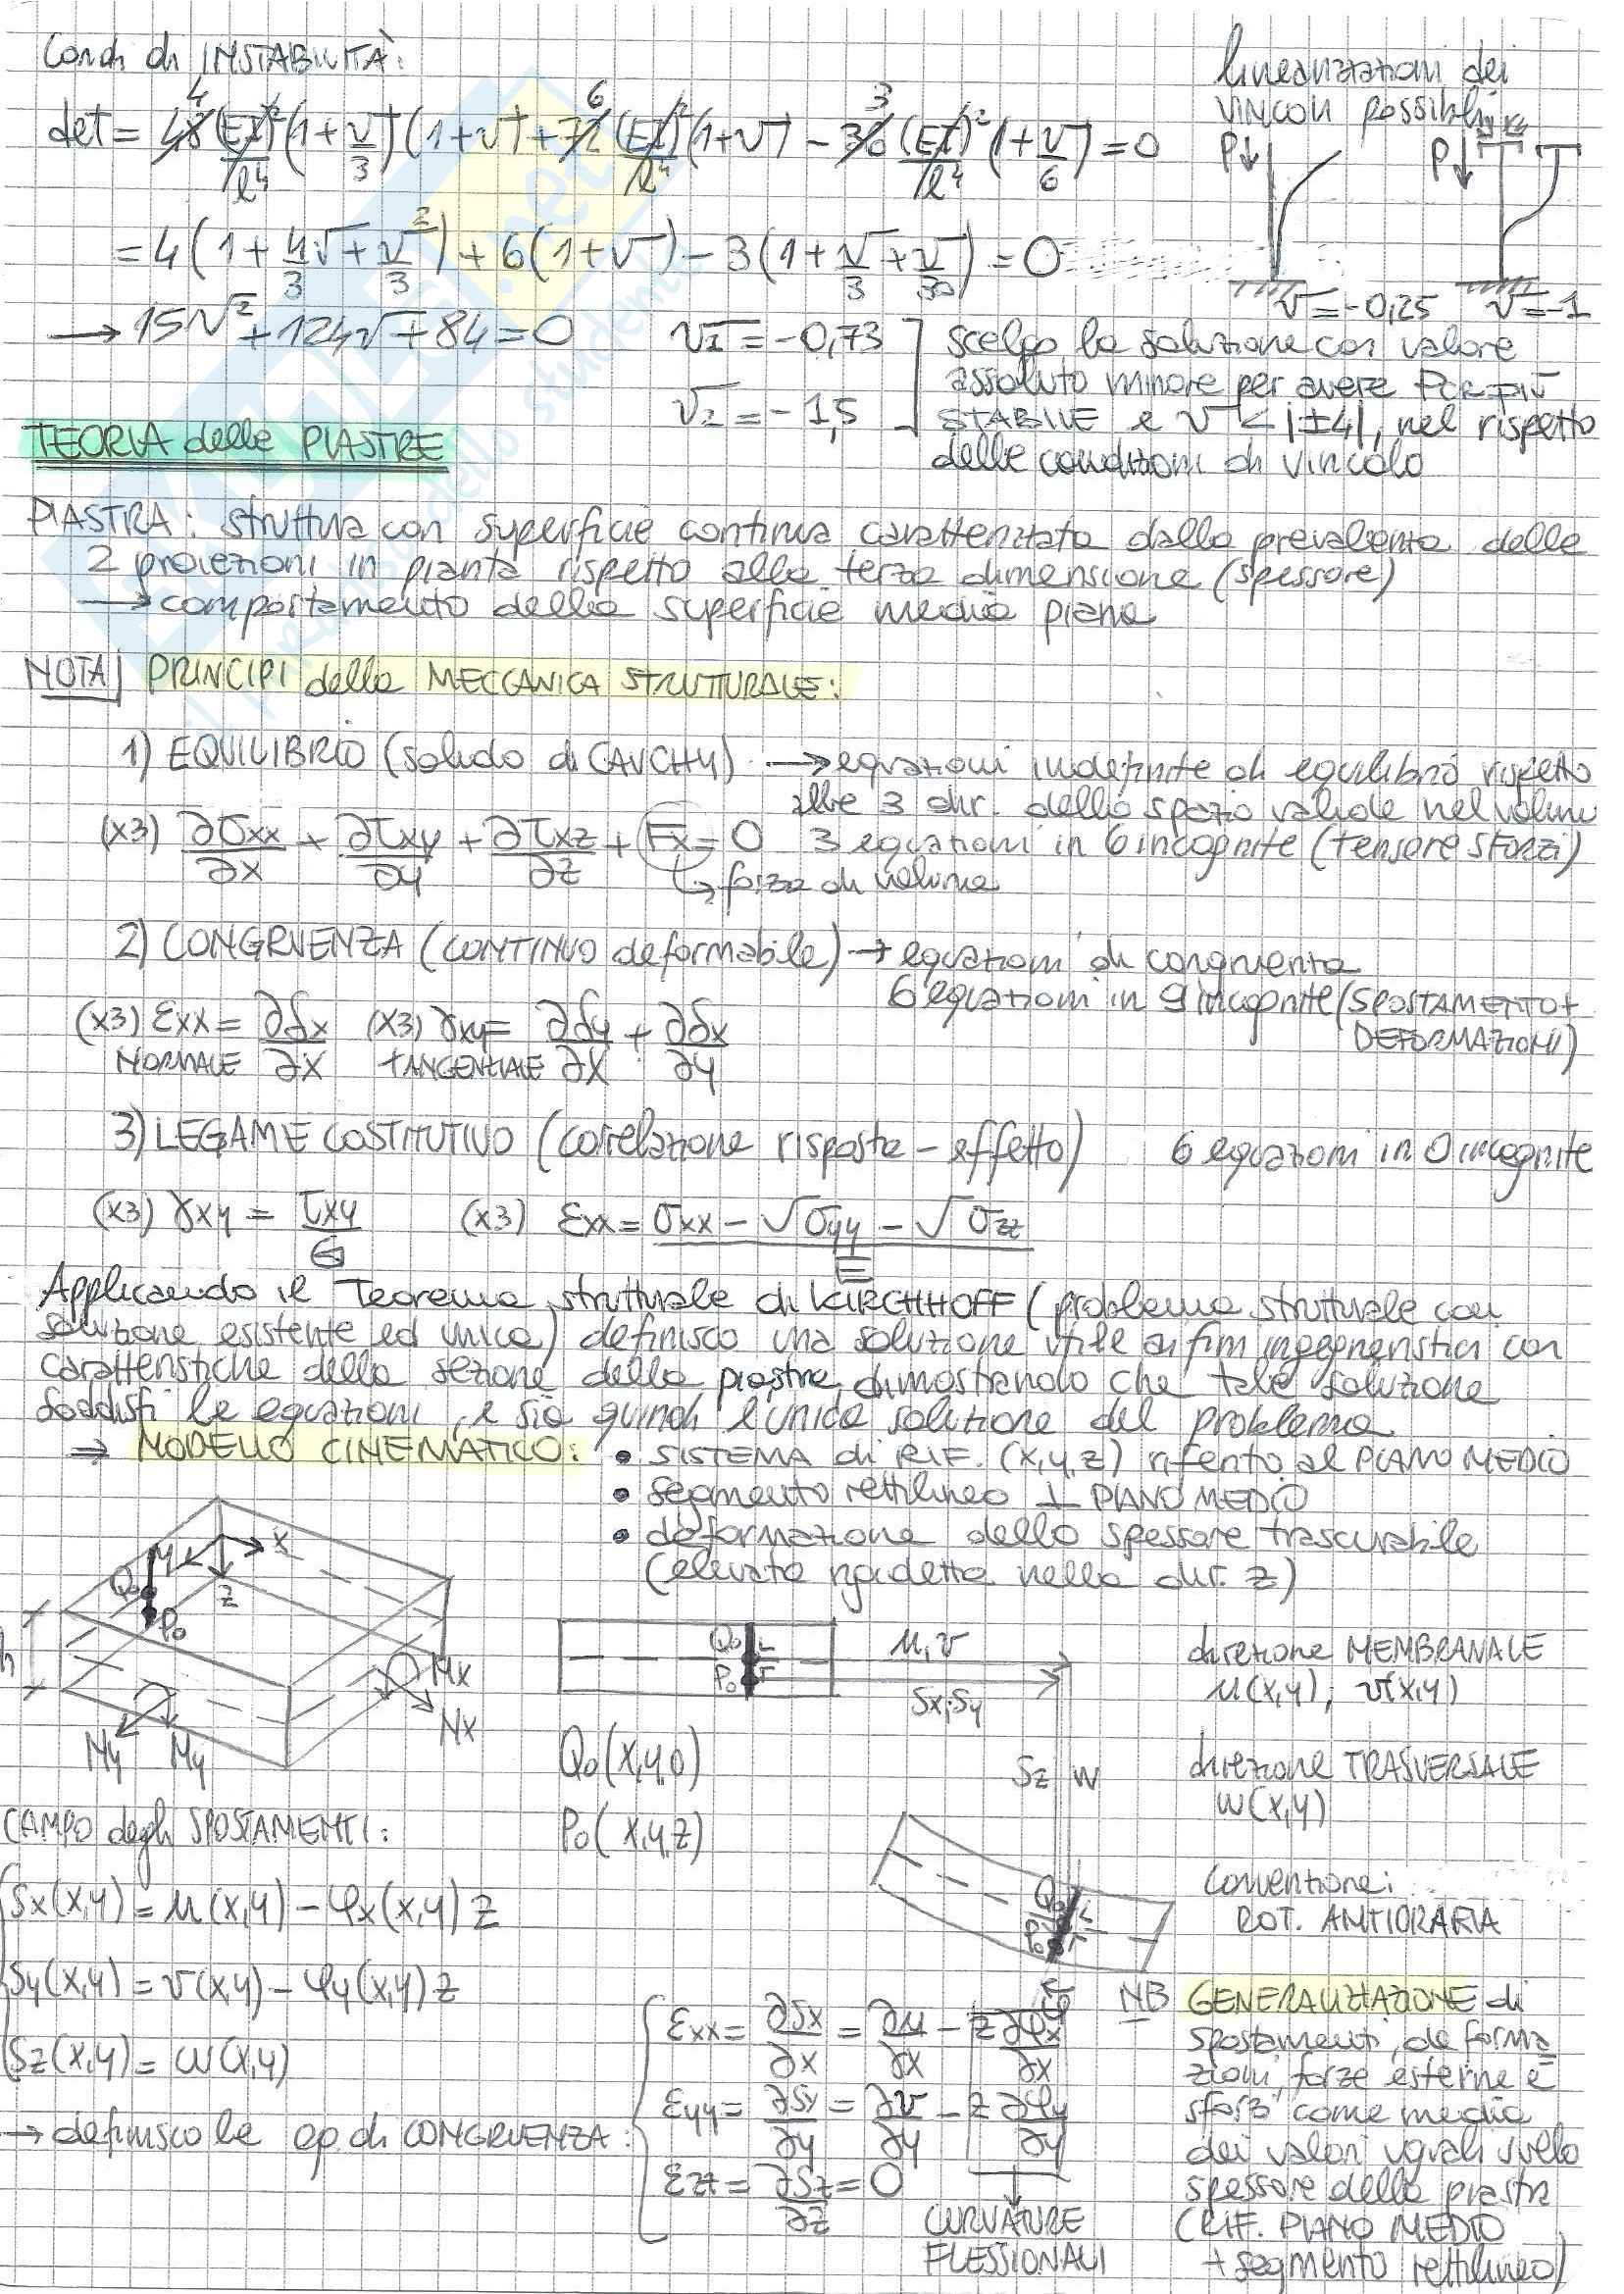 Condi di INSTABILITÀ:
linearizzazioni dei
vincoli possibili
det = 48 4 (EI)²/l⁴ (1+ν/3)(1+ν) + 72 6 (EI)²/l⁴ (1+ν) - 36 3 (EI)²/l⁴ (1+ν/6) = 0
P↓ P↓
= 4(1 + 4/3 ν + ν²/3) + 6(1+ν) - 3(1 + ν/3 + ν/36) = 0
ν = -0,25 ν = -1
→ 15ν² + 124ν + 84 = 0 ν1 = -0,73
ν2 = -1,5
scelgo la soluzione con valore
assoluto minore per avere Pcr più
STABILE e ν < |±4|, nel rispetto
delle condizioni di vincolo
TEORIA delle PIASTRE
PIASTRA: struttura con superficie continua caratterizzata dalla prevalenza delle
2 proiezioni in pianta rispetto alla terza dimensione (spessore)
→ comportamento della superficie media piana
NOTA PRINCIPI della MECCANICA STRUTTURALE:
1) EQUILIBRIO (solido di CAUCHY) → equazioni indefinite di equilibrio rispetto
alle 3 dir. dello spazio valide nel volume
(x3) ∂σxx/∂x + ∂τxy/∂y + ∂τxz/∂z + Fx = 0 3 equazioni in 6 incognite (tensore sforzi)
↳ forza di volume
2) CONGRUENZA (CONTINUO deformabile) → equazioni di congruenza
6 equazioni in 9 incognite (SPOSTAMENTO +
DEFORMAZIONI)
(x3) εxx = ∂δx/∂x (x3) γxy = ∂δy/∂x + ∂δx/∂y
NORMALE TANGENZIALE
3) LEGAME COSTITUTIVO (correlazione risposta - effetto) 6 equazioni in 0 incognite
(x3) γxy = τxy/G (x3) εxx = (σxx - νσyy - νσzz)/E
Applicando il Teorema strutturale di KIRCHHOFF (problema strutturale con
soluzione esistente ed unica) definisco una soluzione utile ai fini ingegneristici con
caratteristiche della sezione della piastra, dimostrando che tale soluzione
soddisfi le equazioni, e sia quindi l'unica soluzione del problema
⇒ MODELLO CINEMATICO: • SISTEMA di RIF. (x,y,z) riferito al PIANO MEDIO
• segmento rettilineo ⊥ PIANO MEDIO
• deformazione dello spessore trascurabile
(elevata rigidezza nella dir. z)
Q0 P0 y x z
h
My Ny Mx Nx
Q0 P0 u,v
Sx,Sy
direzione MEMBRANALE
u(x,y), v(x,y)
Q0(x,y,0)
Sz w
direzione TRASVERSALE
w(x,y)
P0(x,y,z)
CAMPO degli SPOSTAMENTI:
Sx(x,y) = u(x,y) - φx(x,y) z
Sy(x,y) = v(x,y) - φy(x,y) z
Sz(x,y) = w(x,y)
Q0 P0
Convenzione:
ROT. ANTIORARIA
→ definisco le eq. di CONGRUENZA:
εxx = ∂Sx/∂x = ∂u/∂x - z ∂φx/∂x
εyy = ∂Sy/∂y = ∂v/∂y - z ∂φy/∂y
εzz = ∂Sz/∂z = 0
CURVATURE
FLESSIONALI
NB GENERALIZZAZIONE di
spostamenti, deforma
zioni, forze esterne e
sforzi come media
dei valori uguali sullo
spessore della piastra
(RIF. PIANO MEDIO
+ segmento rettilineo)